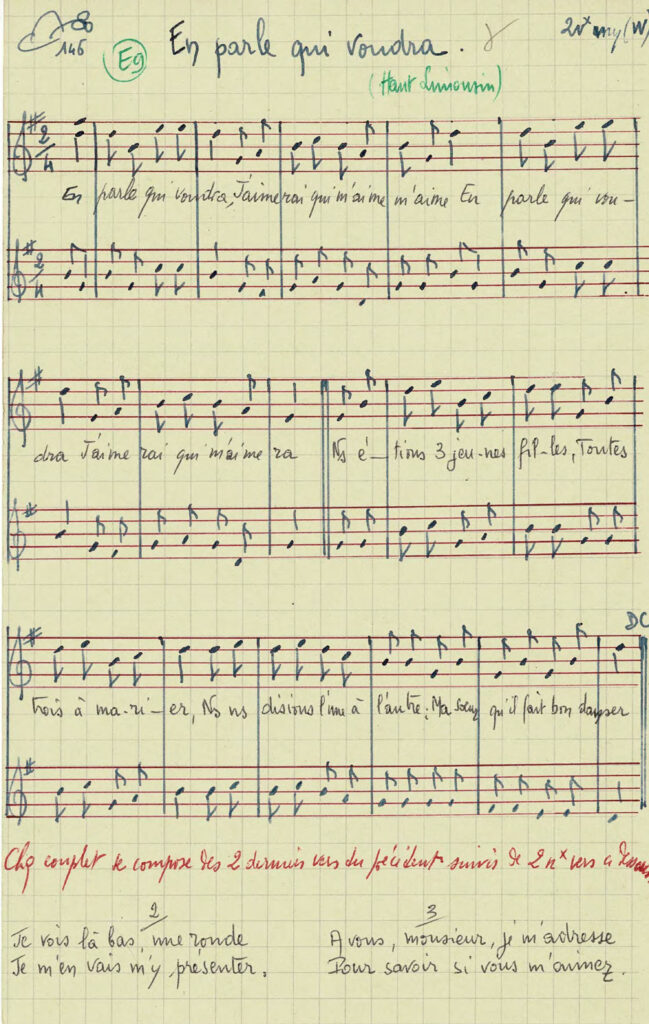 146
E9 En parle qui voudra.
(Haut Limousin)
2
4
En parle qui voudra, J'aimerai qui m'aime m'aime En parle qui vou-
2
4
dra J'aime rai qui m'aime ra Ns é-tions 3 jeu-nes fil-les, Toutes
DC
trois à ma-ri-er, Ns ns disions l'une à l'autre: Ma soeur qu'il fait bon danser
Chq couplet se compose des 2 derniers vers du précédent suivis de 2 nx vers
2
Je vois là bas, une ronde
Je m'en vais m'y présenter.
3
A vous, monsieur, je m'adresse
Pour savoir si vous m'aimez.